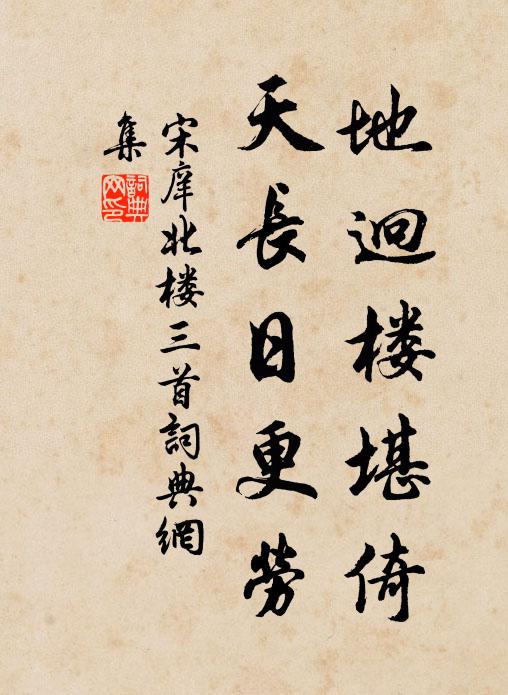 地迥楼堪倚
天長日更勞
宋庠北楼三首詞典網
集
詞典網印